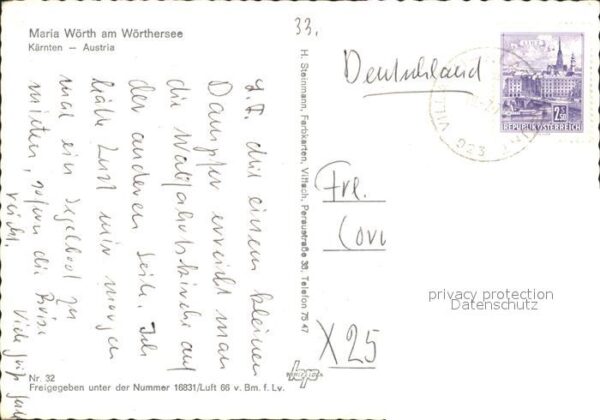 Maria Wörth am Wörthersee
Kärnten – Austria
33.
Deutschland
LINZ
2.50
REPUBLIK ÖSTERREICH
VILLACH
923
z.T. mit einem kleinen
Dampfer erreicht man
die Wallfahrtskirche auf
der anderen Seite. Ich
hätte Lust mir morgen
mal ein Segelboot zu
mieten, sofern die Brise
reicht.
Viele Grüße
H. Steinmann, Farbkarten, Villach, Peraustraße 33, Telefon 75 47
Fre.
X25
privacy protection
Datenschutz
Nr. 32
Freigegeben unter der Nummer 16831/Luft 66 v. Bm. f. Lv.